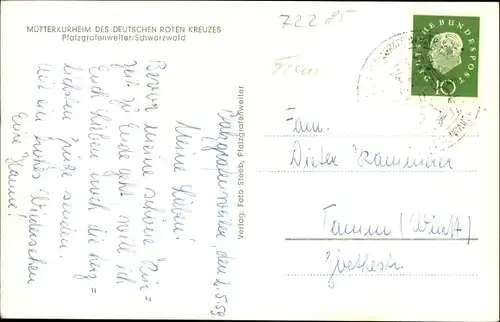 MÜTTERKURHEIM DES DEUTSCHEN ROTEN KREUZES
Pfalzgrafenweiler/Schwarzwald
72285
DEUTSCHE BUNDESPOST
10
Pfalzgrafenweiler, den 2.5.59
Meine Lieben!
Bevor meine schöne Kur=
zeit zu Ende geht, will ich
Euch Lieben noch die herz=
lichsten Grüße senden.
Auf ein frohes Wiedersehen
Eure Hanne.
Verlag: Foto Steeb, Pfalzgrafenweiler
Fam.
Dieter Rammerer
Tamm (Württ)
Goethestr.